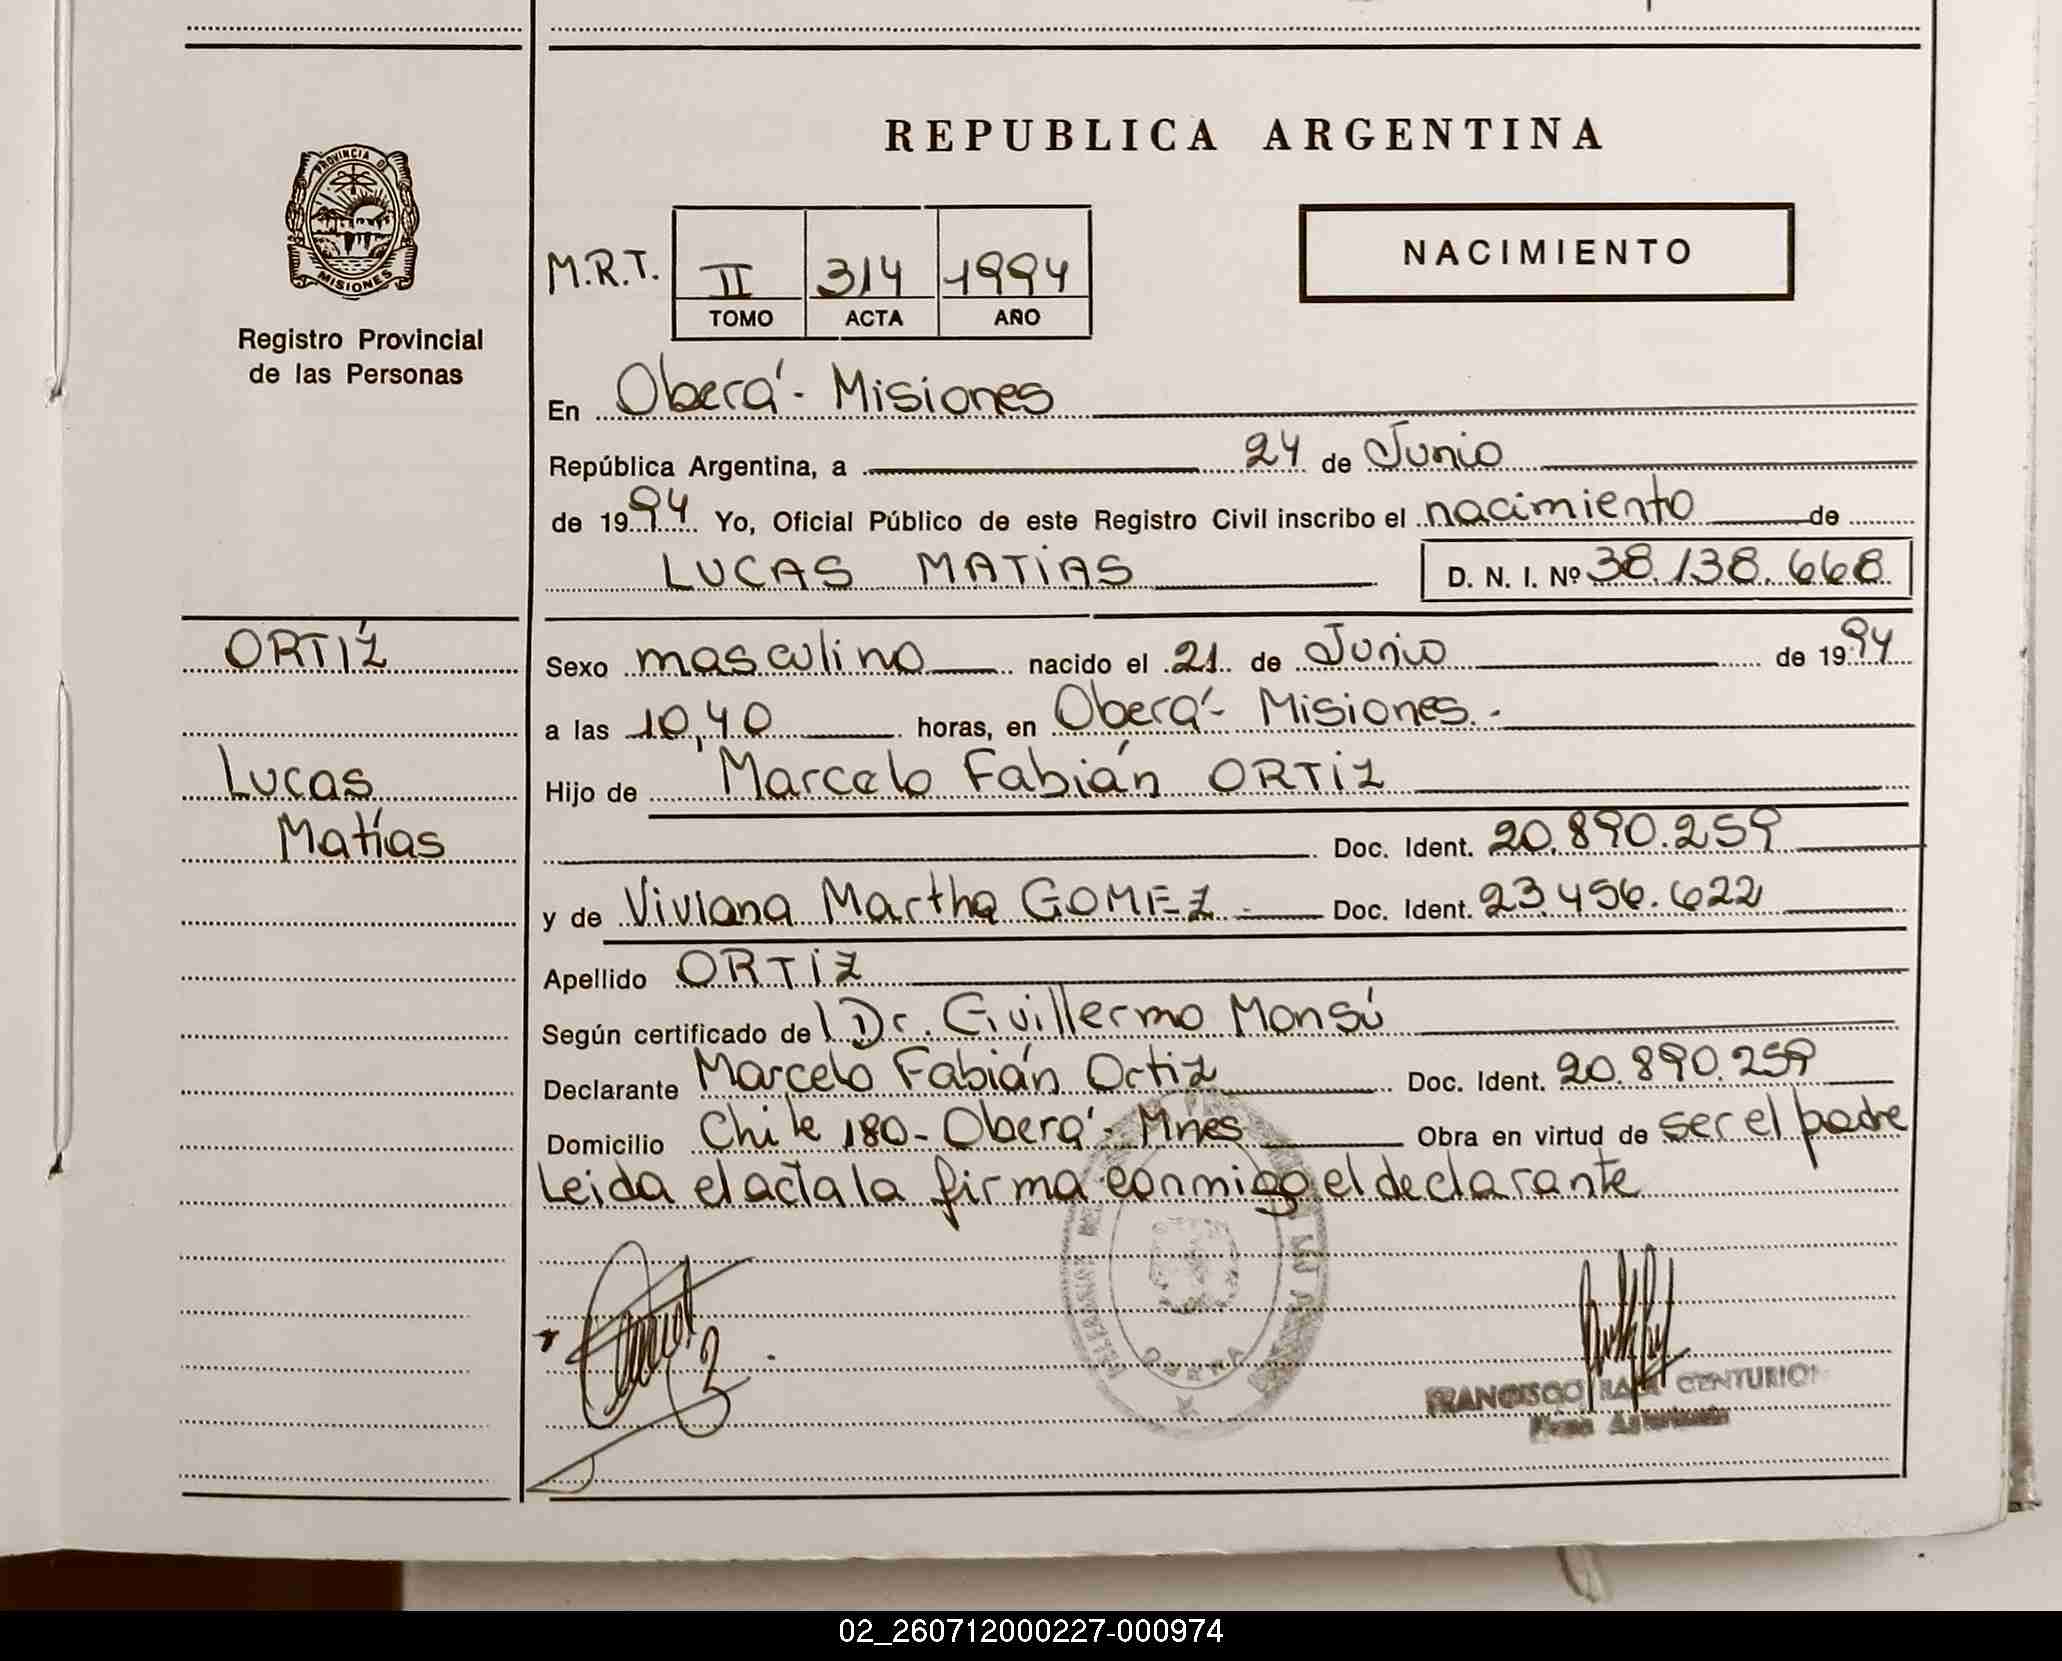 REPUBLICA ARGENTINA
PROVINCIA D
MISIONES
Registro Provincial
de las Personas
M.R.T. II 314 1994
TOMO ACTA AÑO
NACIMIENTO
En Oberá - Misiones
República Argentina, a 24 de Junio
de 1994 Yo, Oficial Público de este Registro Civil inscribo el nacimiento de
LUCAS MATíAS D. N. I. Nº 38.138.668
ORTíZ
Lucas
Matías
Sexo masculino nacido el 21 de Junio de 1994
a las 10,40 horas, en Oberá - Misiones.-
Hijo de Marcelo Fabián ORTíZ
Doc. Ident. 20.890.259
y de Viviana Martha GOMEZ - Doc. Ident. 23.456.622
Apellido ORTíZ
Según certificado de l Dr. Guillermo Monsú
Declarante Marcelo Fabián Ortiz Doc. Ident. 20.890.259
Domicilio Chile 180 - Oberá - Mnes Obra en virtud de ser el padre
Leida el acta la firma conmigo el declarante
OBERA
FRANCISCO RAUL CENTURION
02_260712000227-000974